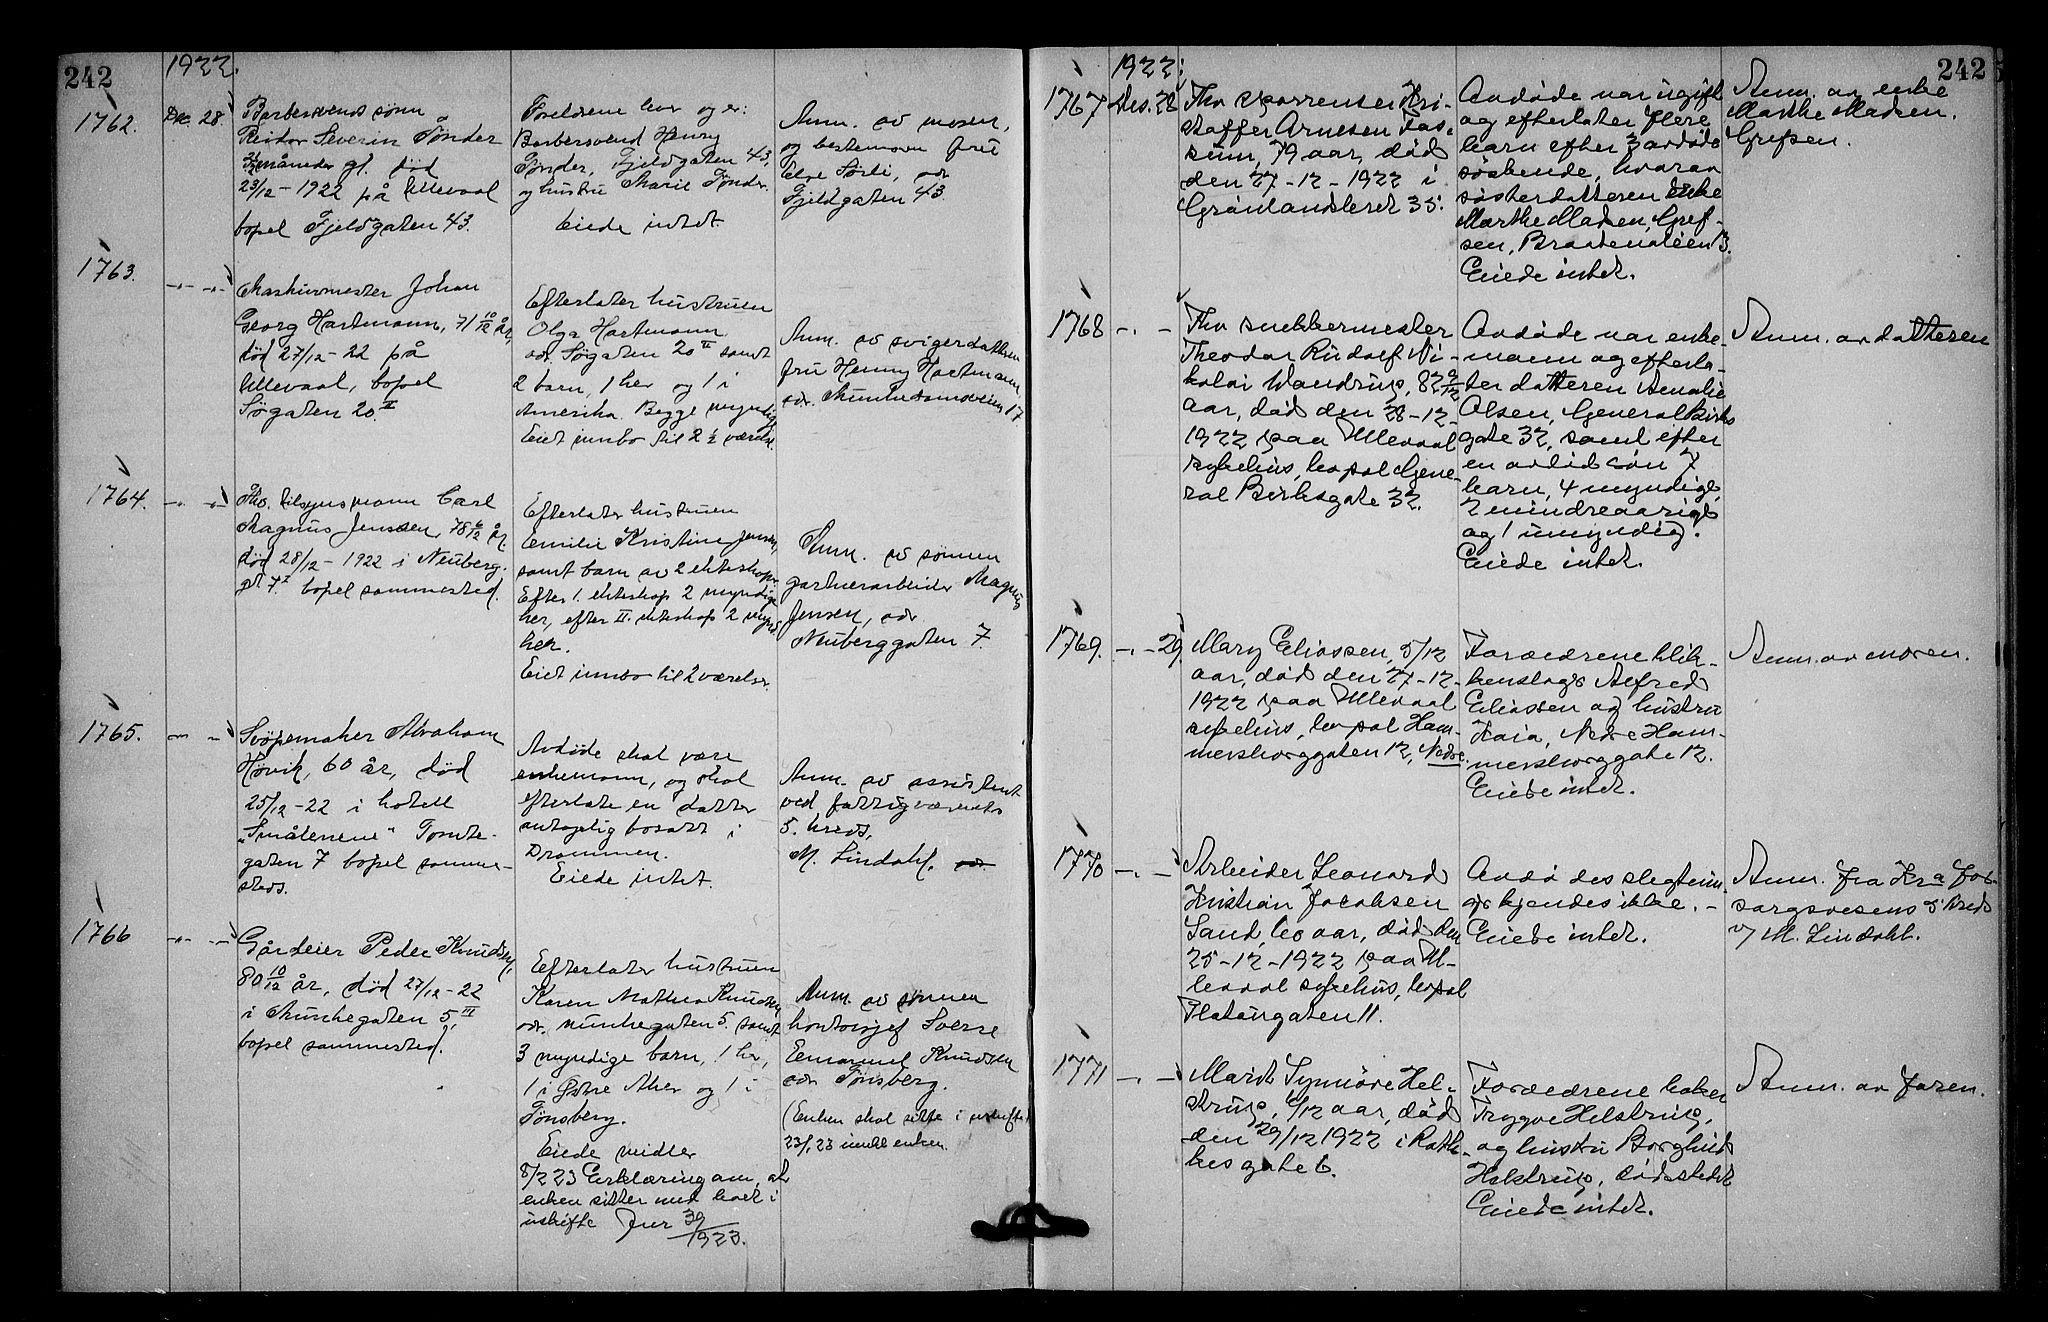 242
1922.
1762.
Dec. 28.
Barbersvend sønn
Reidar Severin Tønder
måneder gl. død
23/12 - 1922 på Ullevaal
bopel Fjeldgaten 43.
Foreldrene lever og er:
Barbersvend Henry
Tønder, Fjeldgaten 43,
og hustru Marie Tønder.
Eiede intet.
Anm. av moren,
og bestemoren fru
Sørli, adr
Fjeldgaten 43.
1763.
-"- -"-
Maskinmester Johan
Georg Hartmann, 71 10/12 år,
død 27/12-22 på
Ullevaal, bopel
Søgaten 20 II
Efterlater hustruen
Olga Hartmann
adr. Søgaten 20 II samt
2 barn, 1 her og 1 i
Amerika. Begge myndige
Eiet innbo til 2 ½ værelse.
Anm. av svigerdatteren
fru Henny Hartmann,
adr. Munkedamsveien 17
1764.
-"- -"-
Fhv. tilsynsmann Carl
Magnus Jensen, 78 6/12 år,
død 28/12 - 1922 i Neuberg-
gt. 7 I bopel sammested.
Efterlater hustruen
Emilie Kristine Jensen,
samt barn av 2 ekteskaper.
Efter 1. ekteskap 2 myndige
her, efter II. ekteskap 2 mynd.
her.
Eiet innbo til 2 værelser.
Anm. av sønnen
gartnerarbeider Magnus
Jensen, adr
Neuberggaten 7.
1765.
-"- -"-
Svøpemaker Abraham
Høvik, 60 år, død
25/12-22 i hotell
"Smålenene" Tomte-
gaten 7 bopel samme-
steds.
Avdøde skal være
enkemann, og skal
efterlate en datter
antagelig bosatt i
Drammen.
Eiede intet.
Anm. av assistent
ved fattigvæsenets
5. kreds,
M. Lindahl.
1766
-"- -"-
Gårdeier Peder Knudsen,
80 10/12 år, død 27/12-22
i Munkegaten 5, III
bopel sammested.
Efterlater hustruen
Karen Mathea Knudsen
adr. Munkegaten 5. samt
3 myndige barn, 1 her,
1 i Østre Aker og 1 i
Tønsberg.
Eiede midler
8/2 23 Erklæring om, at
enken sitter med boet i
uskifte Jur 39/1923.
Anm. av sønnen
kontorsjef Sverre
Emanuel Knudsen
adr Tønsberg.
(Enken skal sitte i uskifte.
23/1 23 enken
1922.
242
1767
Des. 28
Fhv sporrenser Kri-
stoffer Arnesen Fos-
sum, 79 aar, død
den 27-12-1922 i
Grønlandsleret 35.
Avdøde var ugift
og efterlater flere
barn efter 3 avdøde
søskende, hvorav
søsterdatteren enke
Marthe Madsen, Gref-
sen, Braatenaleen 13.
Eiede intet.
Anm. av enke
Marthe Madsen.
Grefsen.
1768
-"- -
Fhv snekkermester
Theodor Rudolf Ni-
kolai Wandrup, 82 9/12
aar, død den 28-12-
1922 paa Ullevaal
sykehus, bopal Gene-
ral Birchsgate 32.
Avdøde var enke-
mann og efterla-
ter datteren Amalie
Olsen, General Birchs
gate 32, samt efter
en avdød søn 7
barn, 4 myndige,
2 mindreaarige
og 1 umyndig.
Eiede intet.
Anm. av datteren
1769.
-"- 29.
Mary Eliassen, 5/12
aar, død den 27-12-
1922 paa Ullevaal
sykehus, bopal Ham-
mersborggaten 12, Nedre.
Forældrene blik-
kenslager Alfred
Eliassen og hustru
Kaia, Nedre Ham-
mersborggate 12.
Eiede intet.
Anm. av moren.
1770
-"- -
Arbeider Leonard
Kristian Jacobsen
Sand, 60 aar, død den
25-12-1922 paa Ul-
levaal sykehus, bopal
Platougaten 11.
Avdødes slegtnin-
ger kjendes ikke. -
Eiede intet.
Anm. fra Kra For-
sorgsvesens 5 kreds
v/ M. Lindahl.
1771
-"- -
Marit Synnøve Hel-
strup, 6/12 aar, død
den 29/12 1922 i Rath-
kes gate 6.
Forældrene baker
Trygve Helstrup,
og hustru Borghild
Helstrup, dødsstedet
Eiede intet.
Anm. av faren.